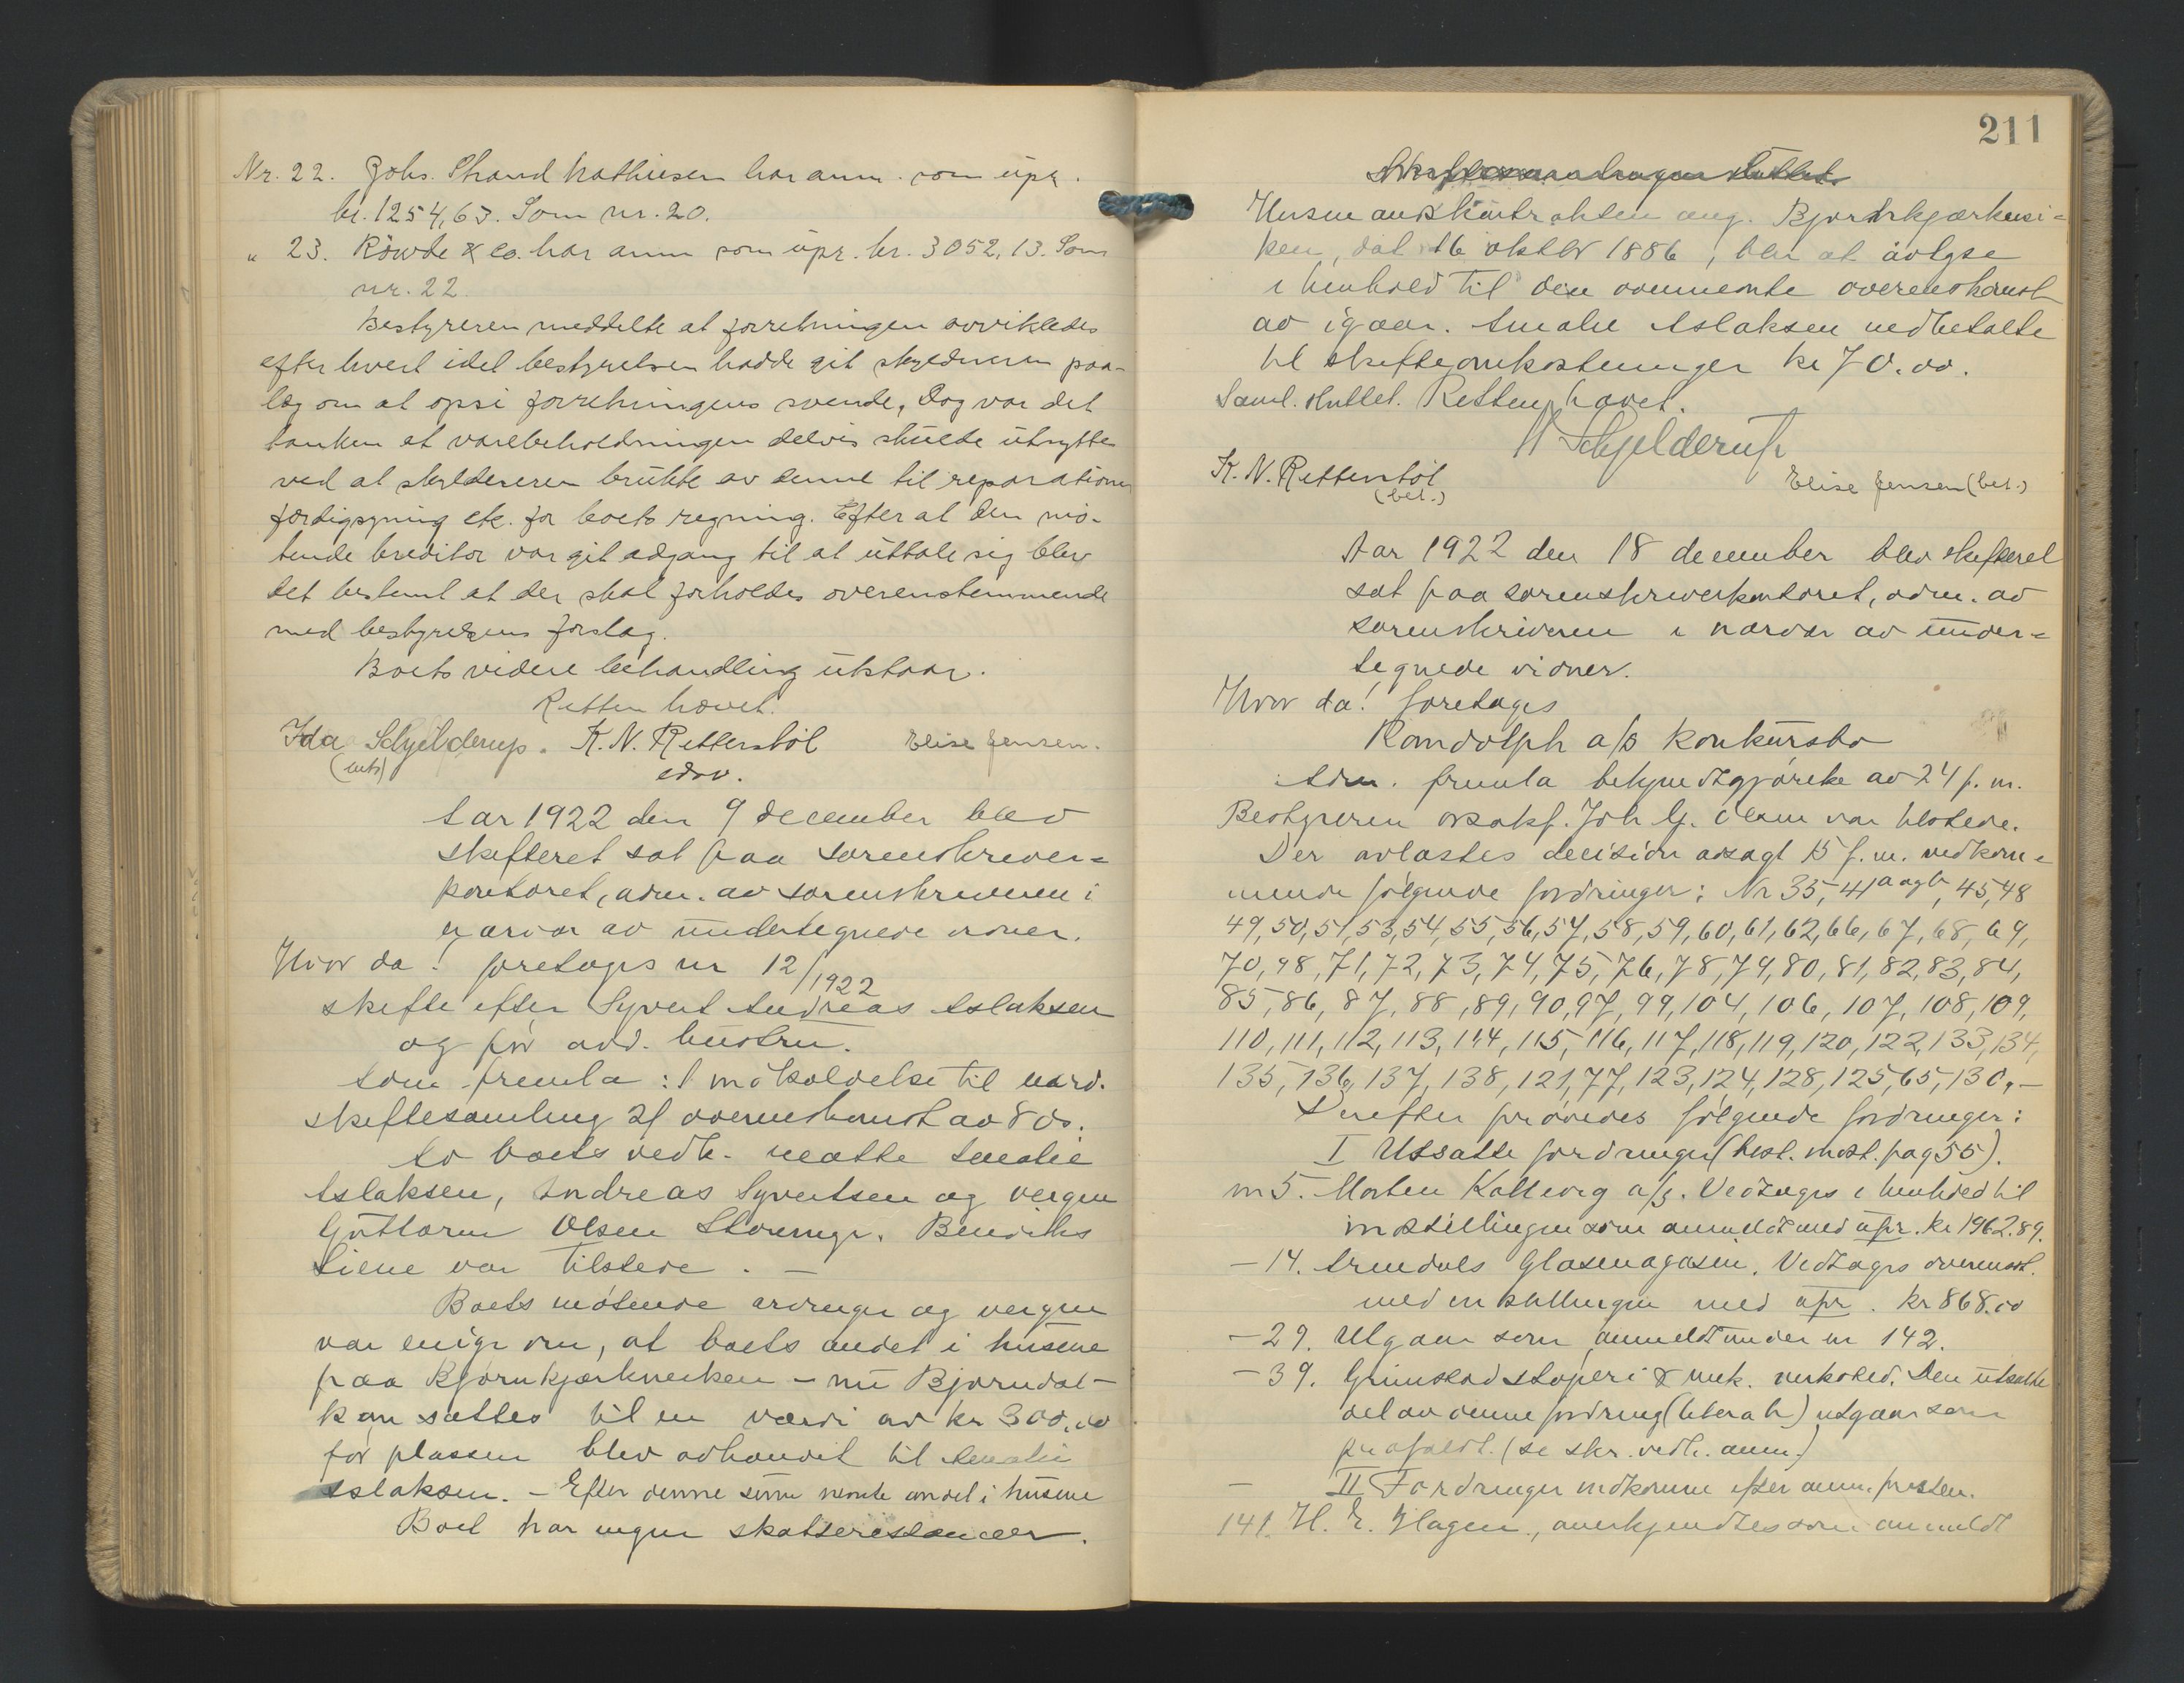 Nr. 22. Johs. Strand Mathiesen har anm. som upr.
kr. 1254,63. Som nr. 20.
" 23. Röwde & co. har anm som upr. kr. 3052,13. Som
nr. 22
Bestyreren meddelte at forretningen avvikledes
efterhvert idet bestyrelsen hadde git skyldneren paa-
læg om at opsi forretningens svende, Dog var det
tanken at varebeholdningen delvis skulde utnyttes
ved at skyldneren brukte av denne til reparationer
færdigsyning etc. for boets regning. Efter at den mö-
tende kreditor var git adgang til at uttale sig blev
det bestemt at der skal forholdes overenstemmende
med bestyrerens forslag.
Boets videre behandling utstaar.
Retten hævet.
Ida Schjelderup. K. N. Rettersböl Elise Jensen.
(const) edsv.
Aar 1922 den 9 december blev
skifteret sat paa sorenskriver-
kontoret, adm. av sorenskriveren i
nærvær av undertegnede vidner.
Hvor da! foretages nr 12/1922
skifte efter Syvert Andreas Aslaksen
og før avd. hustru.
Som fremla: 1 indkaldelse til nærd.
skiftesamling 2) overenskomst av 8 ds.
Av boets vedk. møtte Amalie
Aslaksen, Andreas Syvertsen og vergen
Guttorm Olsen Storemyr. Bendiks
Liene var tilstede. —
Boets møtende arvinger og vergen
var enige om, at boets andel i husene
paa Bjørnkjærkneiken – nu Bjørndal –
kan sættes til en værdi av kr 300.00
for plassen blev avhændet til Amalie
Aslaksen. – Efter denne sum nemte andel i husene
Boet har ingen skatterestancer.
211
Skiftesamlingen sluttet.
Husmandskontrakten ang. Bjørnkjærknei-
ken, dat 16 oktbr 1886, blir at avlyse
i henhold til den ovennemte overenskomst
av igaar. Amalie Aslaksen nedbetalte
til skifteomkostninger kr 70.00.
Saml. sluttet. Retten hævet.
Schjelderup
K. N. Rettersböl Elise Jensen (bet.)
(bet.)
Aar 1922 den 18 december blev skifteret
sat paa sorenskriverkontoret, adm. av
sorenskriveren i nærvær av under-
tegnede vidner.
Hvor da! foretages
Randolph a/s konkursbo
Adm. fremla bekjendtgjørelse av 24 f. m.
Bestyreren o.r.sakf. Joh G. Olsen var tilstede.
Der avlæstes decision avsagt 15 f. m. vedkom-
mende følgende fordringer: Nr 35, 41 a og b, 45, 48
49, 50, 51, 53, 54, 55, 56, 57, 58, 59, 60, 61, 62, 66, 67, 68, 69,
70, 98, 71, 72, 73, 74, 75, 76, 78, 79, 80, 81, 82, 83, 84,
85, 86, 87, 88, 89, 90, 97, 99, 104, 106, 107, 108, 109,
110, 111, 112, 113, 114, 115, 116, 117, 118, 119, 120, 122, 133, 134,
135, 136, 137, 138, 121, 77, 123, 124, 128, 125, 65, 130. –
Derefter prøvedes følgende fordringer:
I Utsatte fordringer (best. indst. pag 55).
nr 5. Morten Kallevig a/s. Vedtages i henhold til
indstillingen som anmeldt med upr. kr 1962.89.
– 14. Arendals Glasmagasin. Vedtages overensst.
med indstillingen med upr. kr 868.00
– 29. Utgaar som anmeldt under nr 142.
– 39. Grimstad støperi & mek. verksted. Den utsatte
del av denne fordring (litera b) utgaar som
frafaldt. (se skr. vedk. anm.)
– II Fordringer indkomne efter anm. fristen.
141. H. E. Hagen, anerkjendtes som anmeldt